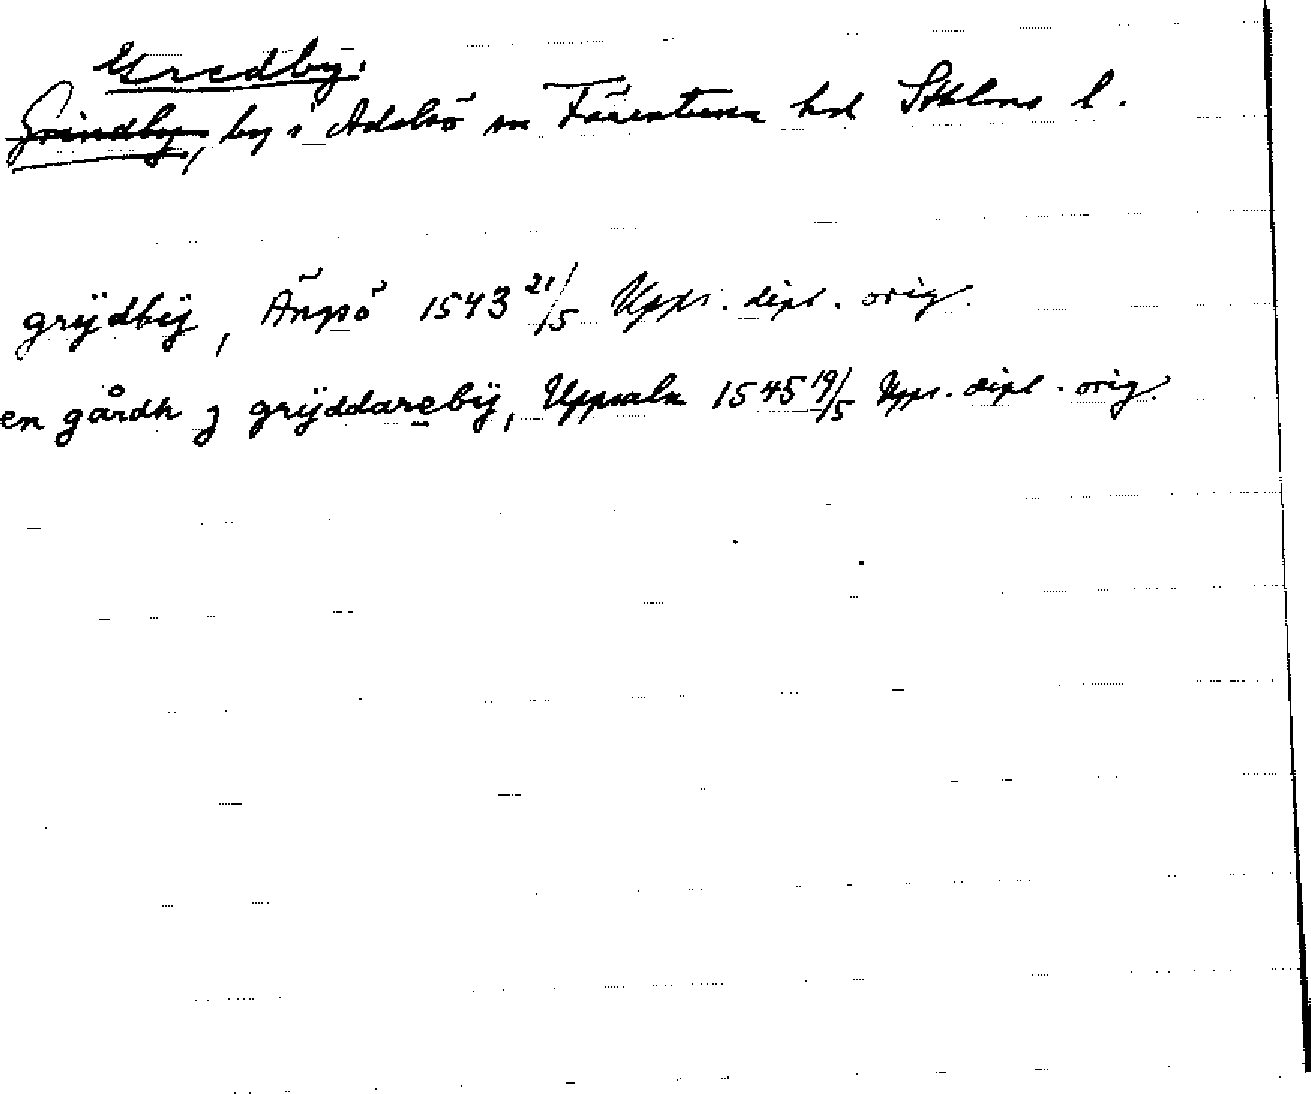 Gredby.
Grindby, by i Adelsö sn Färentuna hd Sthlms l.
grÿdbÿ, Ängsö 1543 21/5 Upps. dipl. orig.
en gårdh j grÿddarebÿ, Uppsala 1545 19/5 Upps. dipl. orig.